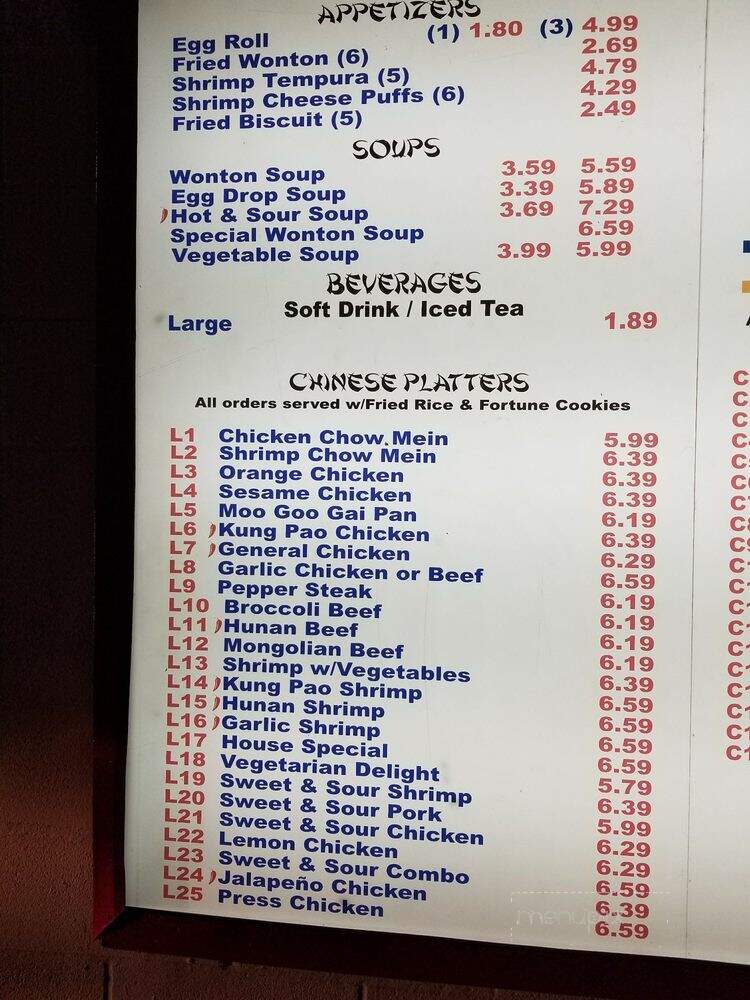 APPETIZERS
Egg Roll (1) 1.80 (3) 4.99
Fried Wonton (6) 2.69
Shrimp Tempura (5) 4.79
Shrimp Cheese Puffs (6) 4.29
Fried Biscuit (5) 2.49
SOUPS
Wonton Soup 3.59 5.59
Egg Drop Soup 3.39 5.89
Hot & Sour Soup 3.69 7.29
Special Wonton Soup 6.59
Vegetable Soup 3.99 5.99
BEVERAGES
Soft Drink / Iced Tea
Large 1.89
CHINESE PLATTERS
All orders served w/Fried Rice & Fortune Cookies
L1 Chicken Chow Mein 5.99
L2 Shrimp Chow Mein 6.39
L3 Orange Chicken 6.39
L4 Sesame Chicken 6.39
L5 Moo Goo Gai Pan 6.19
L6 Kung Pao Chicken 6.39
L7 General Chicken 6.29
L8 Garlic Chicken or Beef 6.59
L9 Pepper Steak 6.19
L10 Broccoli Beef 6.19
L11 Hunan Beef 6.19
L12 Mongolian Beef 6.19
L13 Shrimp w/Vegetables 6.39
L14 Kung Pao Shrimp 6.59
L15 Hunan Shrimp 6.59
L16 Garlic Shrimp 6.59
L17 House Special 6.59
L18 Vegetarian Delight 5.79
L19 Sweet & Sour Shrimp 6.39
L20 Sweet & Sour Pork 5.99
L21 Sweet & Sour Chicken 6.29
L22 Lemon Chicken 6.29
L23 Sweet & Sour Combo 6.59
L24 Jalapeño Chicken 6.39
L25 Press Chicken 6.59